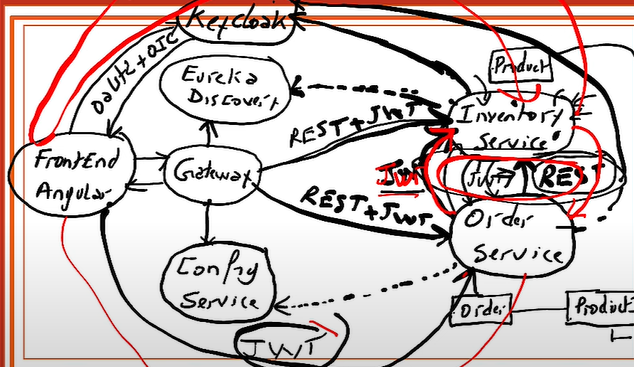 Keycloak
OAUTH2 + OIC
Eureka
Discovery
Product
Inventory
Service
REST + JWT
FrontEnd
Angular
Gateway
JWT
JWT
REST
REST + JWT
Order
Service
Config
Service
Order
Product
JWT